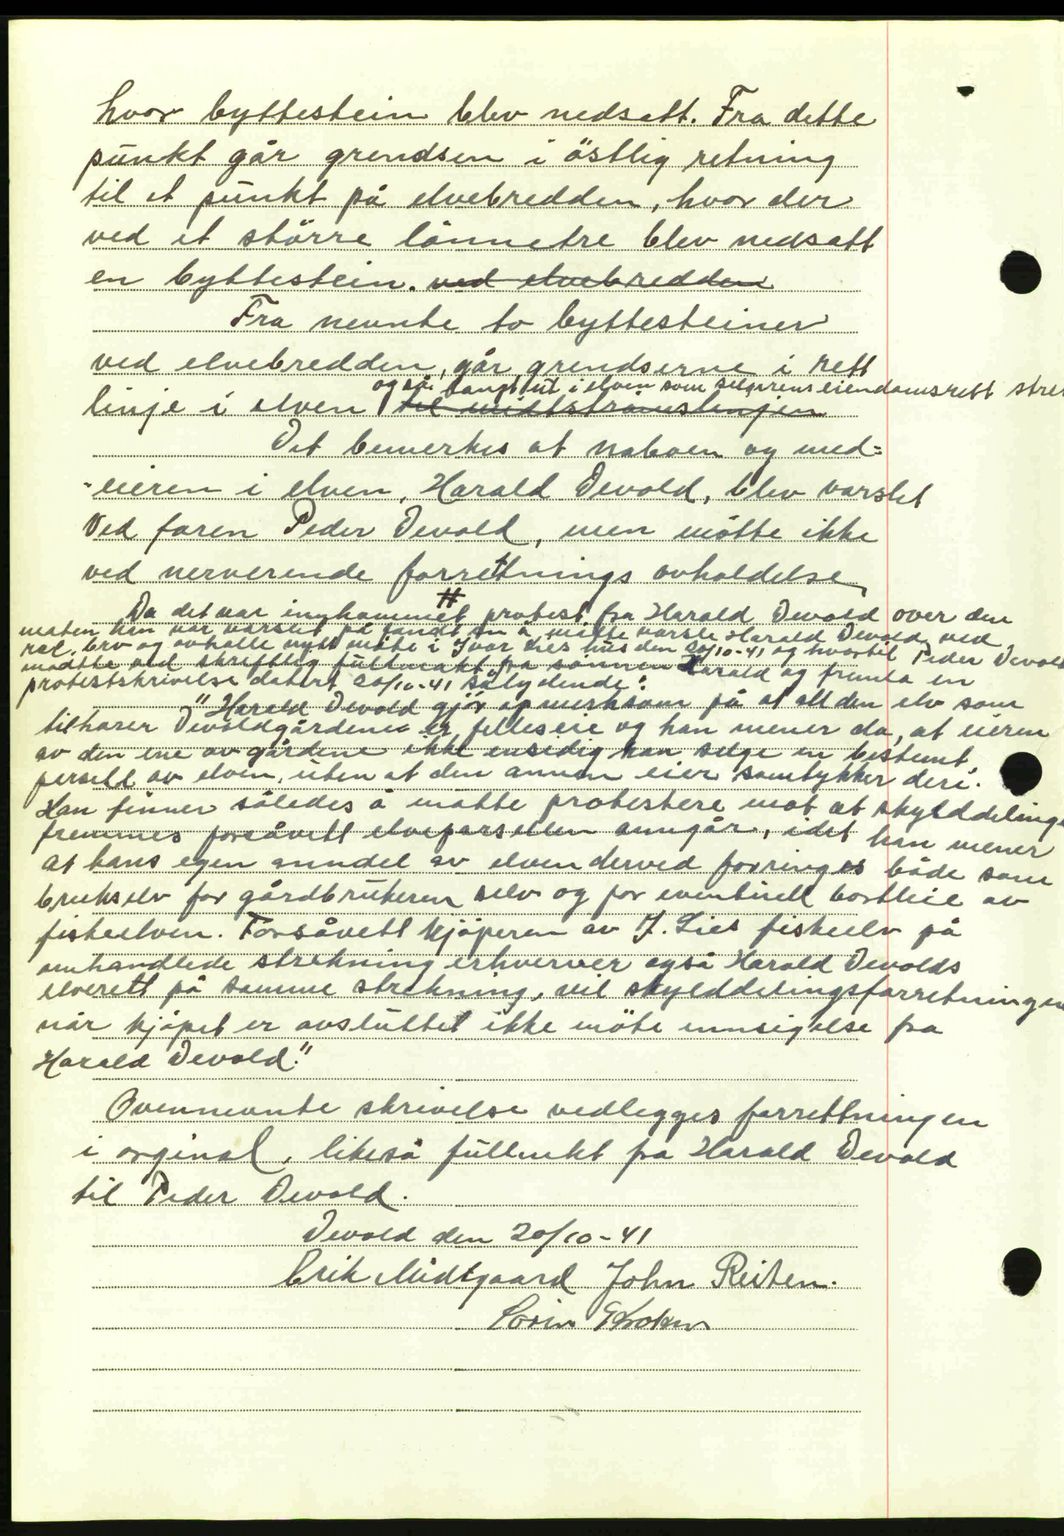 hvor byttestein blev nedsatt. Fra dette
punkt går grendsen i östlig retning
til et punkt på elvebredden, hvor der
ved et større lönnetre blev nedsatt
en byttestein. ved elvebredden
Fra nevnte to byttesteiner
ved elvebredden, går grendserne i rett
også langt ut i elven som selgerens eiendomsrett stre
linje i elven til midtströmslinjen
Det bemerkes at naboen og med=
-eieren i elven, Harald Devold, blev varslet
ved faren Peder Devold, men mötte ikke
ved nerverende forrettnings avholdelse
Da det var innkommet protest fra Harald Devold over den
måten han var varslet på fandt en å måtte varsle Harald Devold ved
rek. brev og avholde nytt möte i Ivar Lies hus den 20/10-41 og hvortil Peder Devold
mödtte ved skriftlig fullmakt fra sönnen Harald og fremla en
protestskrivelse datert 20/10-41 sålydende:
"Harald Devold gjör opmerksom på at all den elv som
tilhører Devoldgårdene er felleseie og han mener da, at eieren
av den ene av gårdene ikke ensidig kan selge en bestemt
persell av elven, uten at den annen eier samtykker deri.
Han finner således å måtte protestere mot at skylddelings
fremmes forsåvett elveparsellen anngår, idet han mener
at hans egen anndel av elven derved forringes både som
brukselv for gårdbrukeren selv og for eventuell bortleie av
fiskeelven. Forsåvett kjöperen av J. Lies fiskeelv på
omhandlede strekning erhverver også Harald Devolds
elverett på samme strekning, vil skylddelingsforretningen
når kjöpet er avsluttet ikke möte innsigelse fra
Harald Devold."
Ovennevnte skrivelse vedlegges forrettningen
i orginal, likeså fullmkt fra Harald Devold
til Peder Devold.
Devold den 20/10-41
Erik Midtgaard John Reiten.